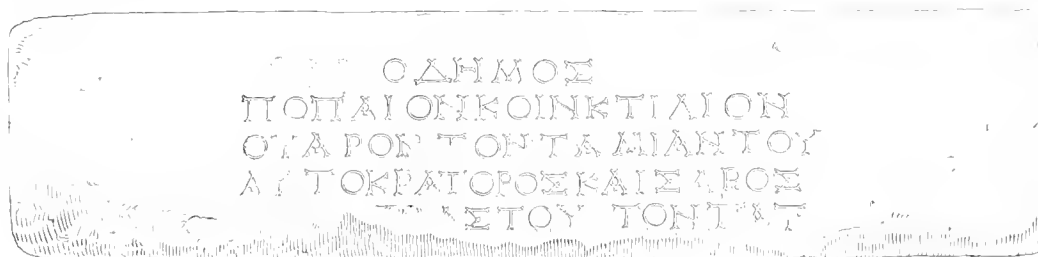 Ο ΔΗΜΟΣ
ΠΟΠΛΙΟΝ ΚΟΙΝΚΤΙΛΙΟΝ
ΟΥΑΡΟΝ ΤΟΝ ΤΑΜΙΑΝ ΤΟΥ
ΑΥΤΟΚΡΑΤΟΡΟΣ ΚΑΙΣΑΡΟΣ
ΑΣΤΟΥ ΤΟΝ